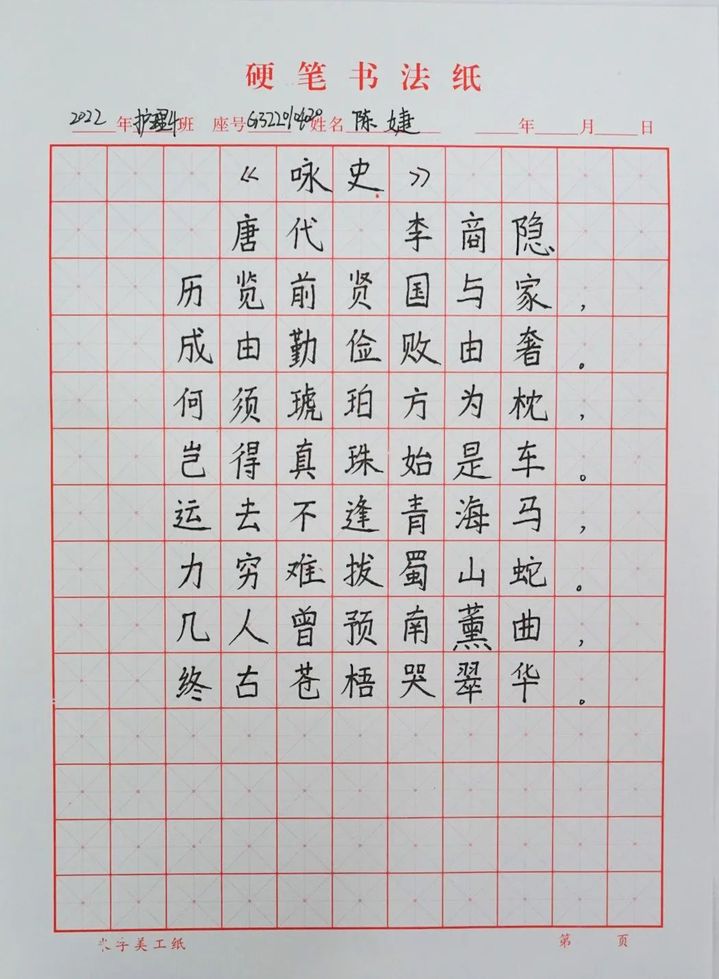 硬笔书法纸
2022年护理4班 座号G1322010420姓名陈婕 年 月 日
《咏史》
唐代 李商隐
历览前贤国与家，
成由勤俭败由奢。
何须琥珀方为枕，
岂得真珠始是车。
运去不逢青海马，
力穷难拔蜀山蛇。
几人曾预南薰曲，
终古苍梧哭翠华。
米字美工纸 第 页